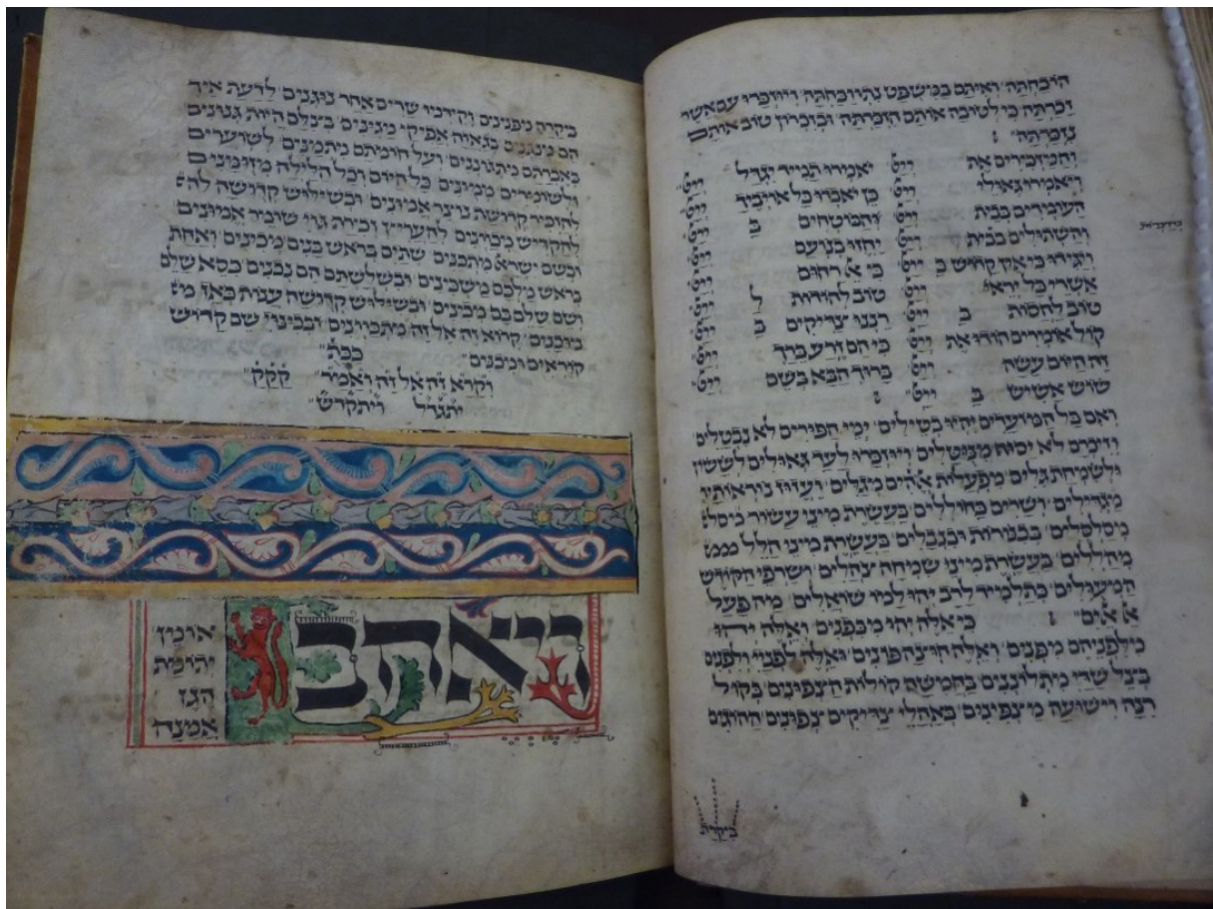 הוכחתה ואותם במשפט נתווכחתה ויזכרו עם אשר
זכרתה כי לטובה אותם הזכרתה ובזכרון טוב אותם
נזכרתה
והמזכירים את וֹיֹטֹ יאמרו תמיד יגדל וֹיֹטֹ
ויאמרו גאולי וֹיֹטֹ כן יאבדו כל אויביך וֹיֹטֹ
העומדים בבית וֹיֹטֹ והבוטחים ב וֹיֹטֹ
והשתולים בבית וֹיֹטֹ יחזו בנועם וֹיֹטֹ
ויגידו כי אין קדוש ב וֹיֹטֹ כי א רחום וֹיֹטֹ
אשרי כל ירא וֹיֹטֹ טוב להודות ל וֹיֹטֹ
טוב לחסות ב וֹיֹטֹ רננו צדיקים ב וֹיֹטֹ
קול אומרים הודו את וֹיֹטֹ כי הם זרע ברך וֹיֹטֹ
זה היום עשה וֹיֹטֹ ברוך הבא בשם וֹיֹטֹ
שוש אשיש ב וֹיֹטֹ
ואם כל המועדים יהיו בטילים ימי הפורים לא נבטלים
וזכרם לא יסוף ויזכרו לעד גאולים לששון
ולשמחת גלים מפעלות מגלים ועזוז נוראותיך
מגדילים ושרים כחוללים בעשרת מיני עשור מסל
מסלסלים בכנורות ובנבלים בעשרת מיני הלל
מהללים בעשרת מיני שמחה צהלים ושרפי הקודש
המעולים כתלמיד לרב יהו למו שואלים מה פעל
כי אלה יהו מבפנים ואלה יהיו
מלפניהם מפנים ואלה חוצה פונים ואלה לפניי ולפנים
בצל שדי מתלוננים בחמישה קולות הצפונים בקול
רצה וישועה מצפינים באהלי צדיקים צפונים החונים
ביקרת
ביקרה מפנינים וקידמו שרים אחר נוגנים לדעת איך
הם מנגנים בגאוה אפיקי מגינים בינלם היות גנונים
באברתם מתגוננים ועל חומתם מתמנים לשוערים
ולשומרים מכוינים כל היום וכל הלילה מזומינים
להזכיר קדושת נוצר אמונים ובשילוש קדושה לה
להקדיש מכוונים להעריץ זכירת גוי שומר אמונים
ובשם ישרא מתכנים שתים בראש בנים מכונים ואחת
בראש מלכם משכינים ובשלשתם הם נבנים כסא שלם
ושם שלם בם מכונים ובשילוש קדושה ענות באז
מוכנים קרוא זה אל זה מתכוונים ובכינוי שם קדוש
קוראים ומכונים ככת
וקרא זה אל זה ואמר קקק
יתגדל ויתקדש
ויאהב
אומץ
יהימת
הגז
אמצה